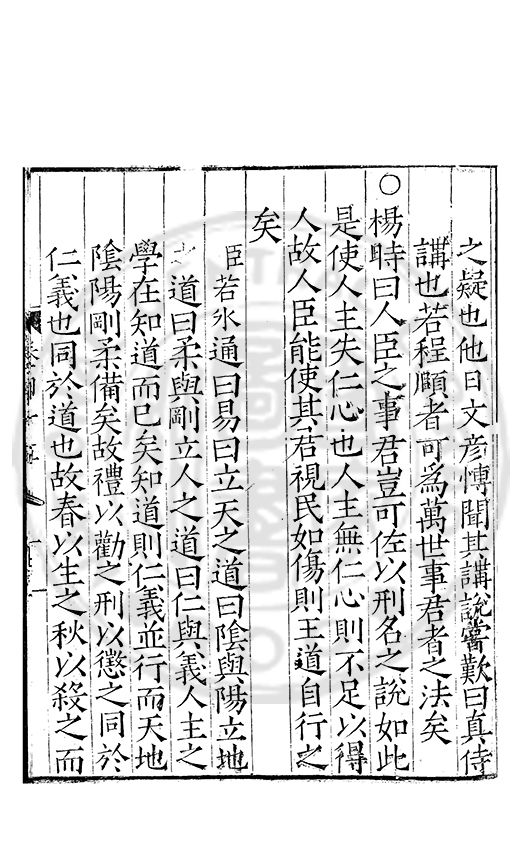 之疑也他日文彦博聞其講說嘗歎曰真侍
講也若程頤者可為萬世事君者之法矣
○楊時曰人臣之事君豈可佐以刑名之說如此
是使人主失仁心也人主無仁心則不足以得
人故人臣能使其君視民如傷則王道自行之
矣
臣若水通曰易曰立天之道曰陰與陽立地
之道曰柔與剛立人之道曰仁與義人主之
學在知道而已矣知道則仁義並行而天地
陰陽剛柔備矣故禮以勸之刑以懲之同於
仁義也同於道也故春以生之秋以殺之而